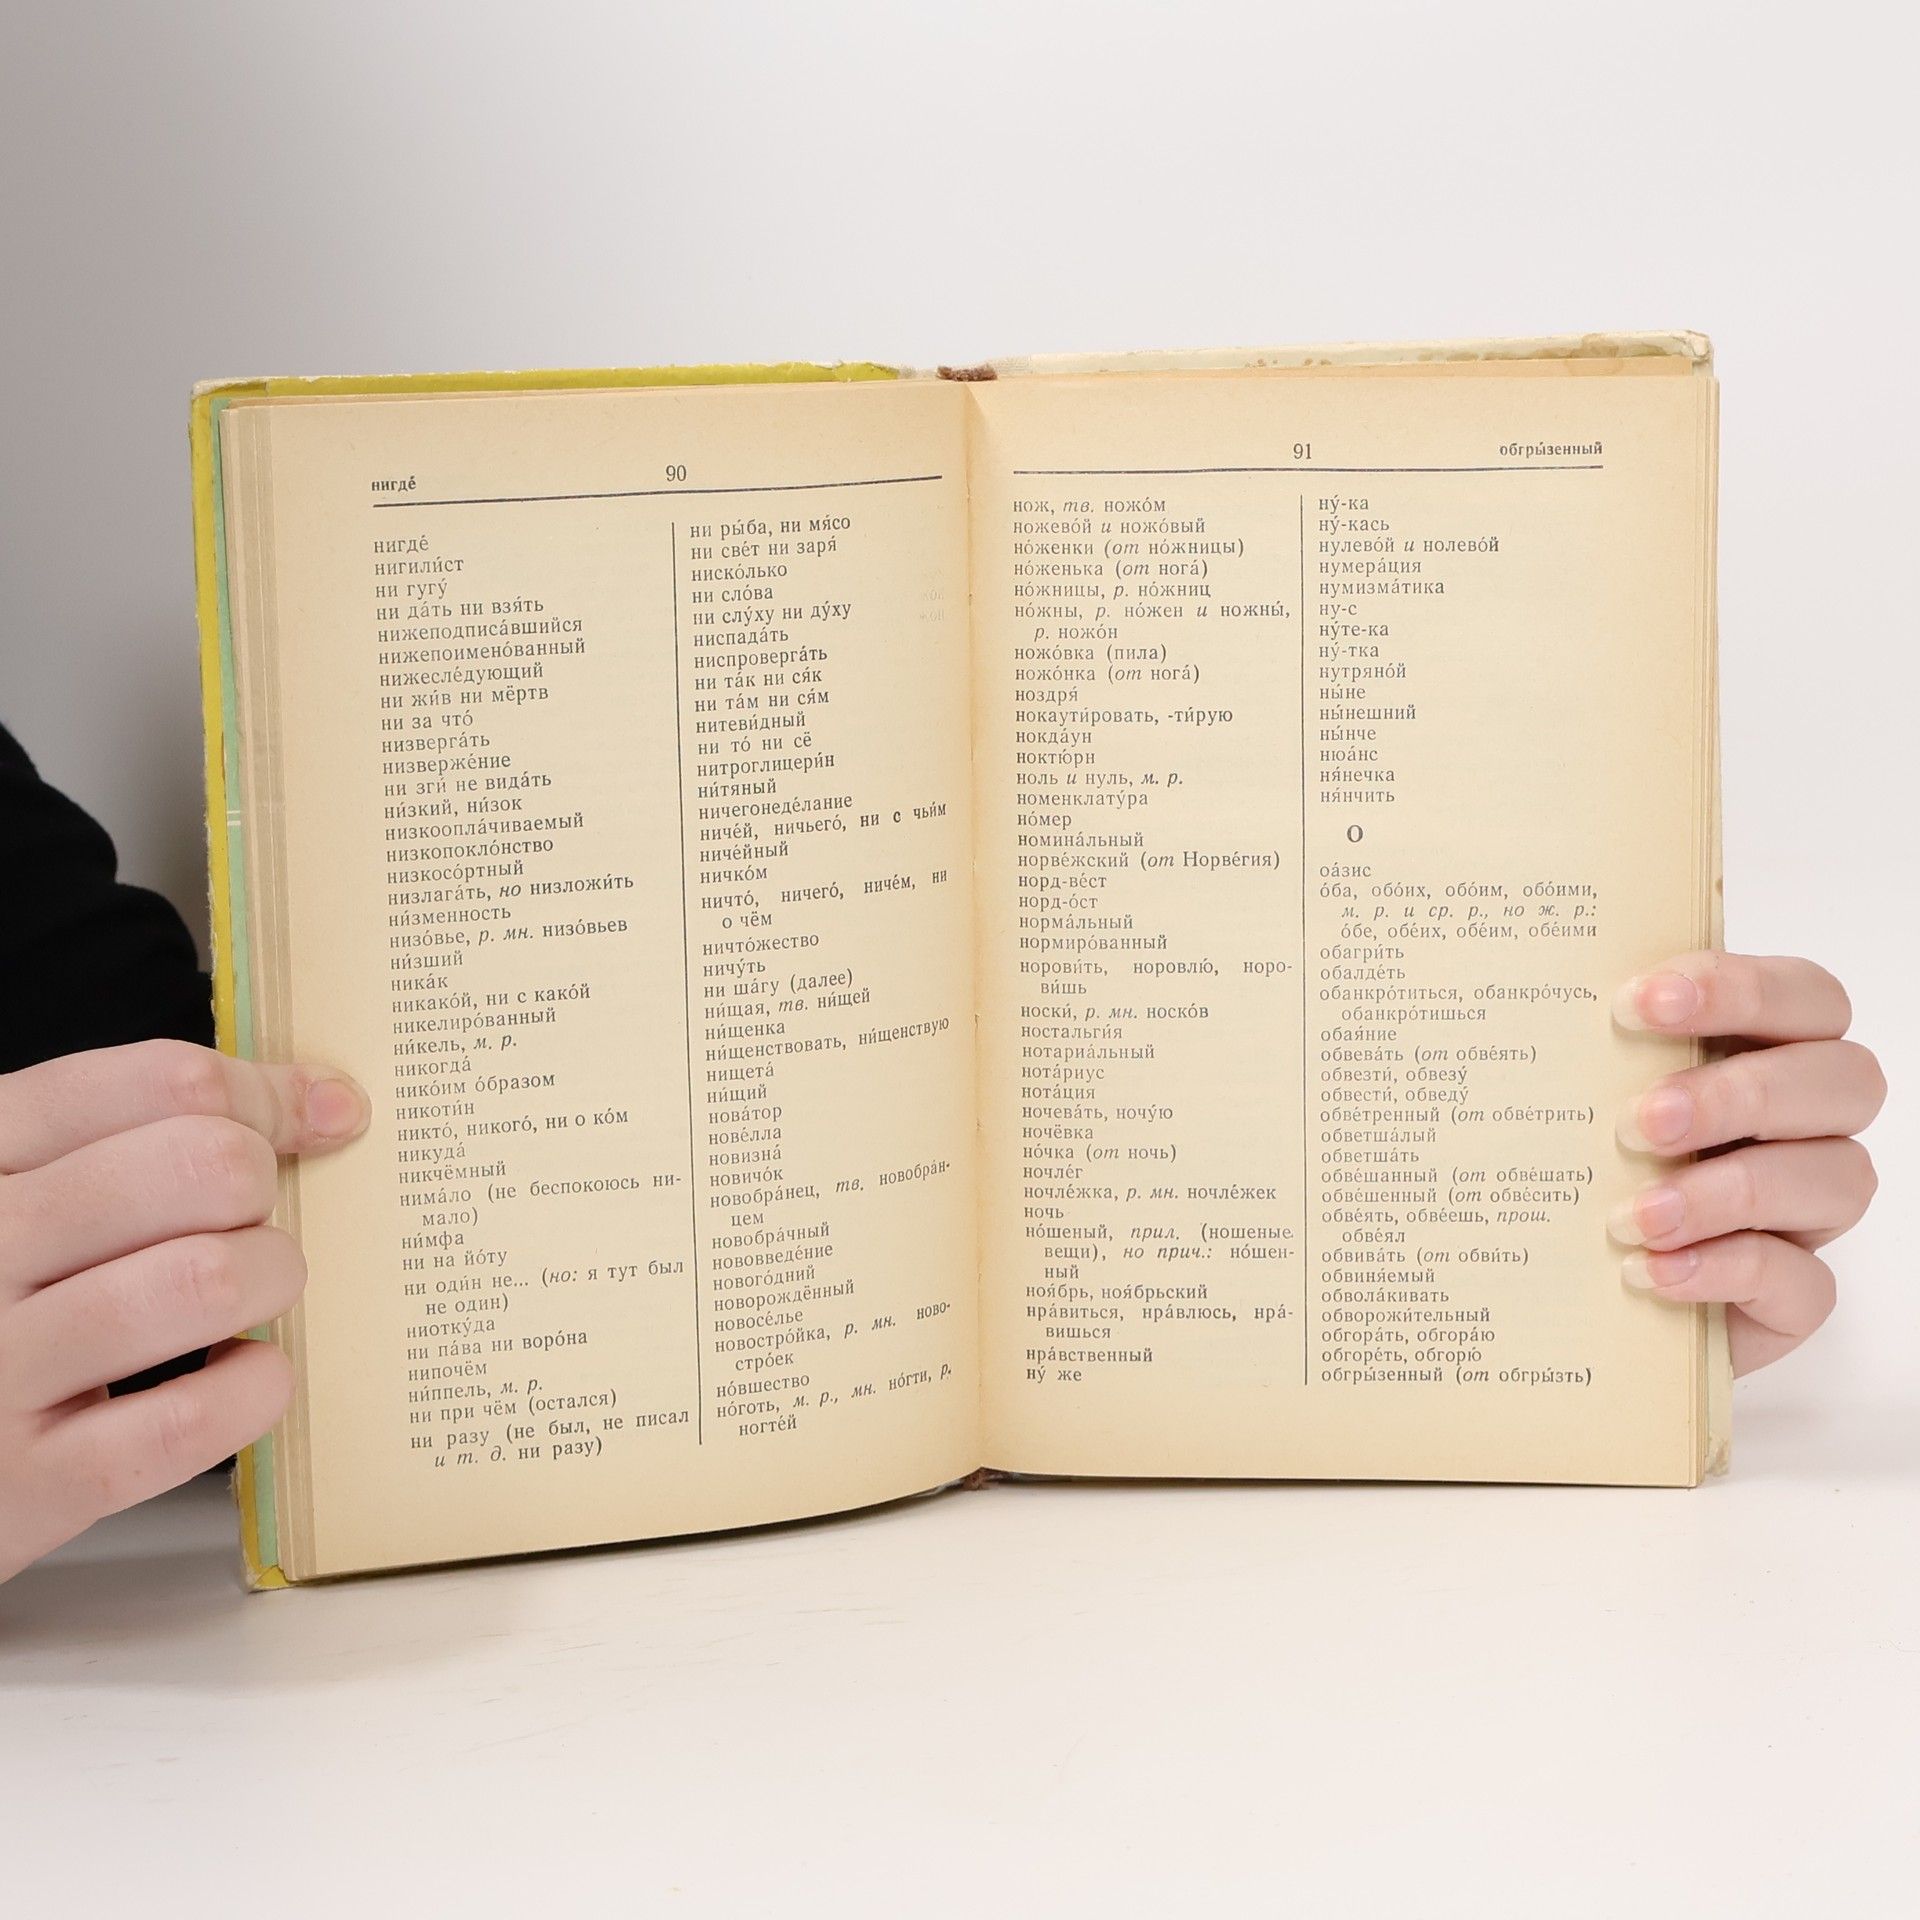 нигде́
90
нигде́
нигили́ст
ни гугу́
ни да́ть ни взя́ть
нижеподписа́вшийся
нижепоимено́ванный
нижесле́дующий
ни жи́в ни мёртв
ни за что́
низверга́ть
низверже́ние
ни зги́ не вида́ть
ни́зкий, ни́зок
низкоопла́чиваемый
низкопокло́нство
низкосо́ртный
низлага́ть, но низложи́ть
ни́зменность
низо́вье, р. мн. низо́вьев
ни́зший
ника́к
никако́й, ни с како́й
никелиро́ванный
ни́кель, м. р.
никогда́
нико́им о́бразом
никоти́н
никто́, никого́, ни о ко́м
никуда́
никчёмный
нима́ло (не беспокоюсь ни-
мало)
ни́мфа
ни на йо́ту
ни оди́н не... (но: я тут был
не один)
ниотку́да
ни па́ва ни воро́на
нипочём
ни́ппель, м. р.
ни при чём (остался)
ни разу (не был, не писал
и т. д. ни разу)
ни ры́ба, ни мя́со
ни све́т ни заря́
ниско́лько
ни сло́ва
ни слу́ху ни ду́ху
ниспада́ть
ниспроверга́ть
ни та́к ни ся́к
ни та́м ни ся́м
нитеви́дный
ни то́ ни сё
нитроглицери́н
ни́тяный
ничегонеде́лание
ниче́й, ничьего́, ни с чьи́м
ниче́йный
ничко́м
ничто́, ничего́, ниче́м, ни
о чём
ничто́жество
ничу́ть
ни ша́гу (далее)
ни́щая, тв. ни́щей
ни́щенка
ни́щенствовать, ни́щенствую
нищета́
ни́щий
нова́тор
нове́лла
новизна́
новичо́к
новобра́нец, тв. новобра́н-
цем
новобра́чный
нововведе́ние
нового́дний
новорождённый
новосе́лье
новостро́йка, р. мн. ново-
стро́ек
но́вшество
но́готь, м. р., мн. но́гти, р.
ногте́й
91
обгры́зенный
нож, тв. ножо́м
ножево́й и ножо́вый
но́женки (от но́жницы)
но́женька (от нога́)
но́жницы, р. но́жниц
но́жны, р. но́жен и ножны́,
р. ножо́н
ножо́вка (пила)
ножо́нка (от нога́)
ноздря́
нокаути́ровать, -ти́рую
нокда́ун
ноктю́рн
ноль и нуль, м. р.
номенклату́ра
но́мер
номина́льный
норве́жский (от Норве́гия)
норд-ве́ст
норд-о́ст
норма́льный
нормиро́ванный
норови́ть, норовлю́, норо-
ви́шь
носки́, р. мн. носко́в
ностальги́я
нотариа́льный
нота́риус
нота́ция
ночева́ть, ночу́ю
ночёвка
но́чка (от ночь)
ночле́г
ночле́жка, р. мн. ночле́жек
ночь
но́шеный, прил. (ношеные
вещи), но прич.: но́шен-
ный
ноя́брь, ноя́брьский
нра́виться, нра́влюсь, нра́-
вишься
нра́вственный
ну́ же
ну́-ка
ну́-кась
нулево́й и нолево́й
нумера́ция
нумизма́тика
ну-с
ну́те-ка
ну́-тка
нутряно́й
ны́не
ны́нешний
ны́нче
нюа́нс
ня́нечка
ня́нчить
О
оа́зис
о́ба, обо́их, обо́им, обо́ими,
м. р. и ср. р., но ж. р.:
о́бе, обе́их, обе́им, обе́ими
обагри́ть
обалде́ть
обанкро́титься, обанкро́чусь,
обанкро́тишься
обая́ние
обвева́ть (от обве́ять)
обвезти́, обвезу́
обвести́, обведу́
обве́тренный (от обве́трить)
обветша́лый
обветша́ть
обве́шанный (от обве́шать)
обве́шенный (от обве́сить)
обве́ять, обве́ешь, прош.
обве́ял
обвива́ть (от обви́ть)
обвиня́емый
обвола́кивать
обворожи́тельный
обгора́ть, обгора́ю
обгоре́ть, обгорю́
обгры́зенный (от обгры́зть)